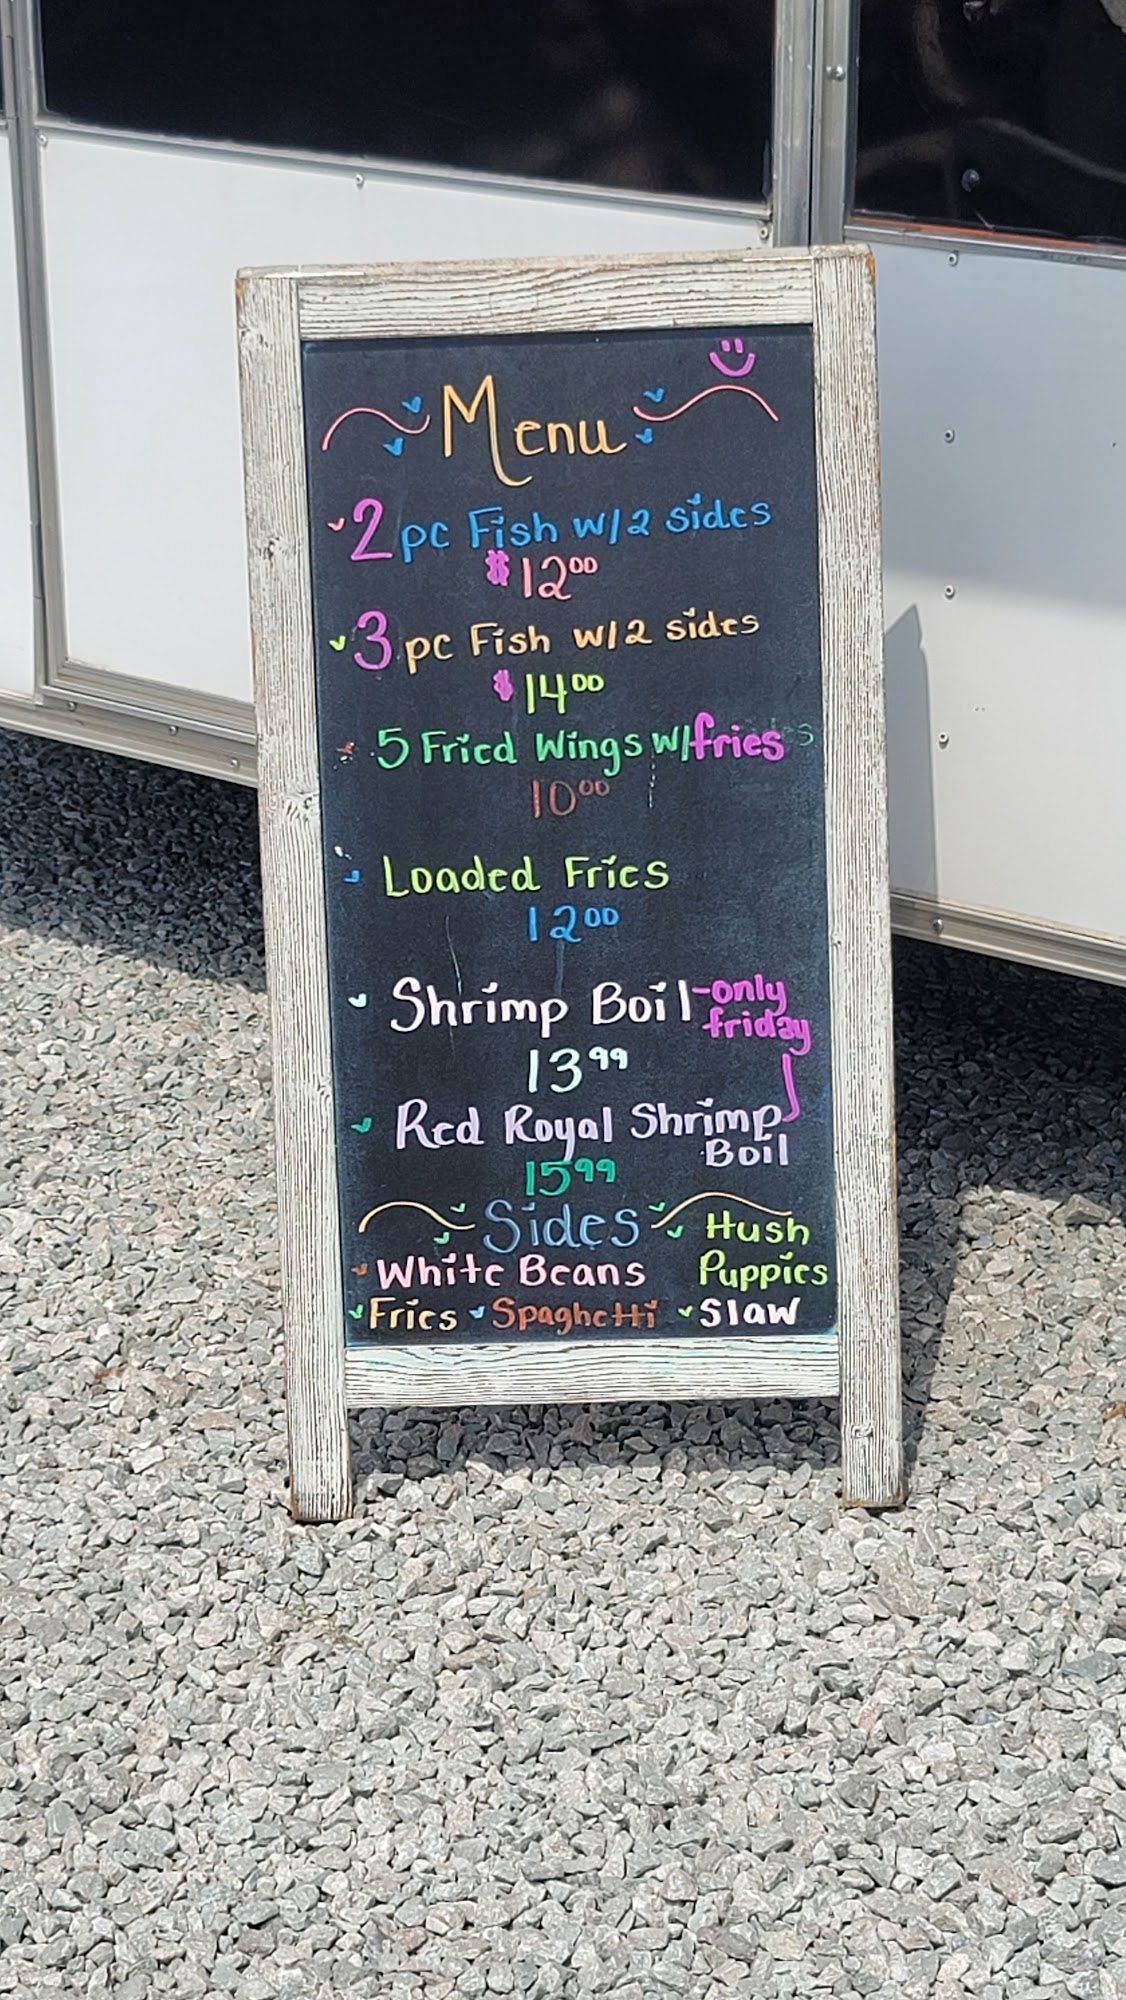 Menu
2 pc Fish w/2 sides
$12⁰⁰
3 pc Fish w/2 sides
$14⁰⁰
5 Fried Wings w/fries
10⁰⁰
Loaded Fries
12⁰⁰
Shrimp Boil -only
friday
13⁹⁹
Red Royal Shrimp
Boil
15⁹⁹
Sides
Hush
White Beans Puppies
Fries Spaghetti Slaw